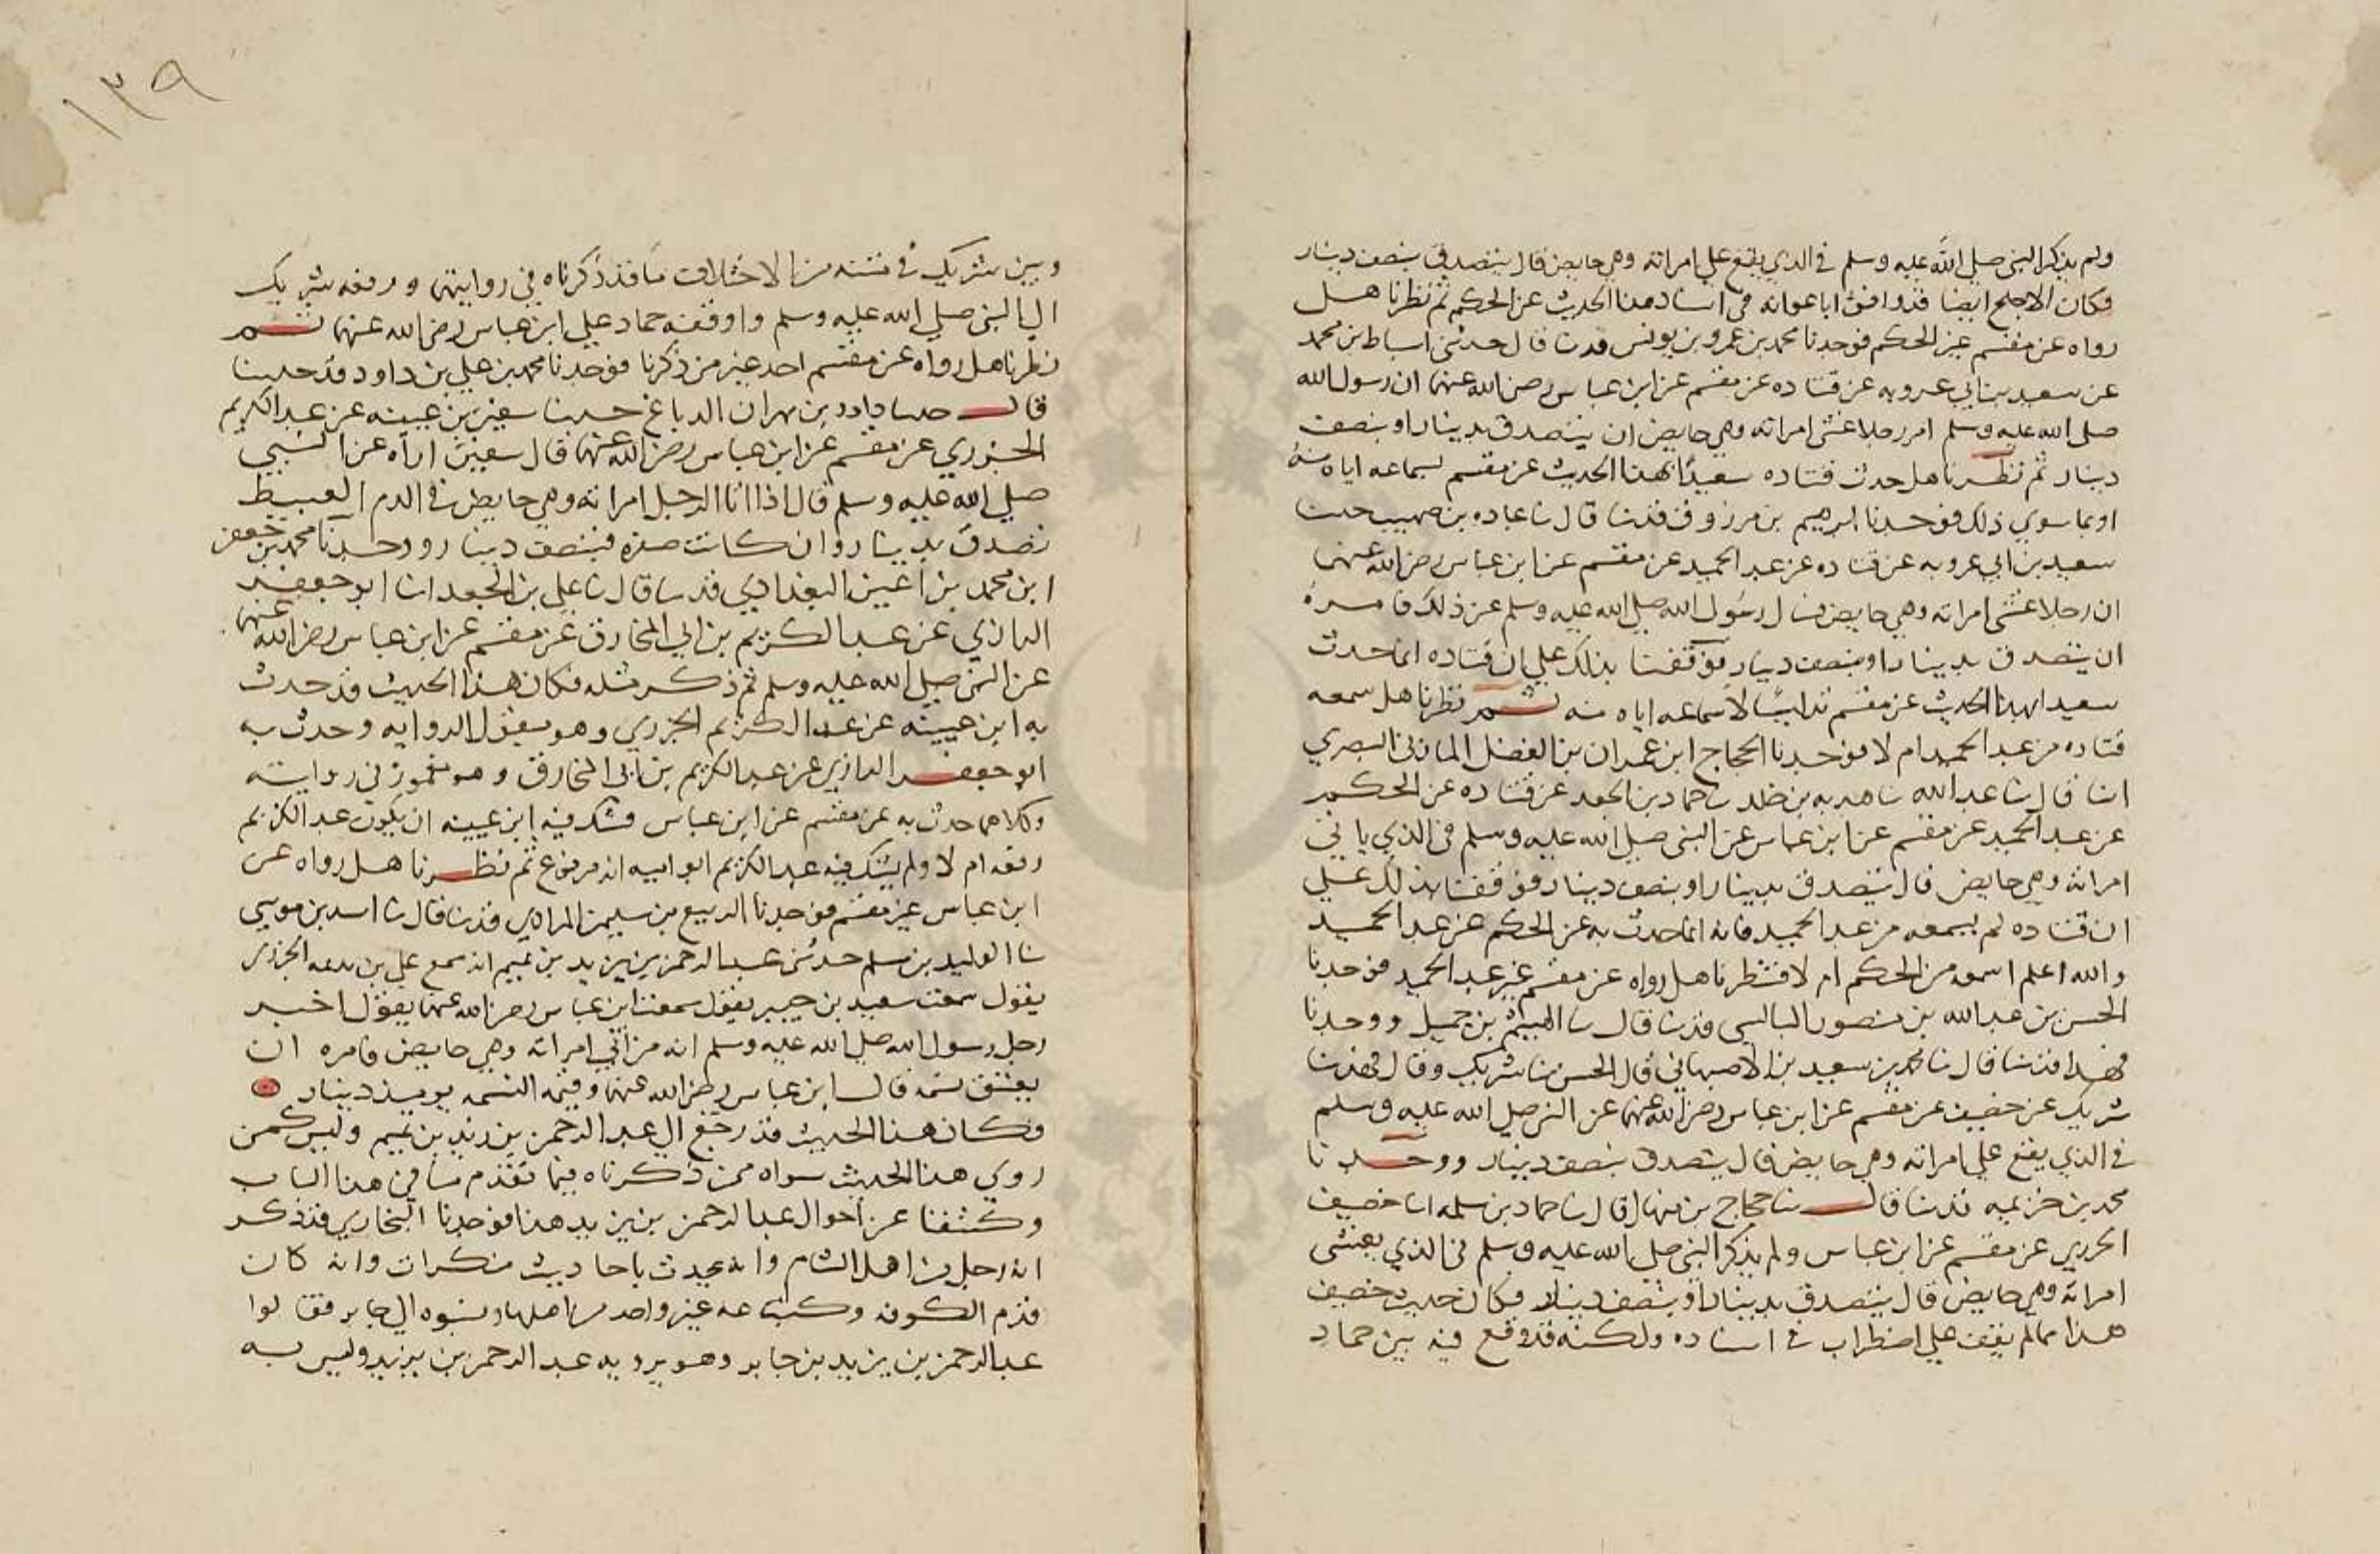 ولم يذكر النبى صلى الله عليه وسلم فى الذي يقع علي امراته وهى حايض قال يتصدق بنصف دينار
فكان الاجلح ايضا قد وافق ابا عوانه فى اسناد هذا الحديث عن الحكم ثم نظرنا هل
رواه عن مقسم غير الحكم فوجدنا محمد بن عمرو بن يونس قد قال حدثنى اسباط بن محمد
عن سعيد بن ابي عروبه عن قتاده عن مقسم عن ابن عباس رضى الله عنهما ان رسول الله
صلى الله عليه وسلم امر رجلا غشى امراته وهى حايض ان يتصدق بدينار او بنصف
دينار ثم نظرنا هل حدث قتاده سعيدًا بهذا الحديث عن مقسم لسماعه اياه منه
او بما سوي ذلك فوجدنا ابرهيم بن مرزوق قد ثنا قال ثنا عباده بن صهيب حدثنا
سعيد بن ابي عروبه عن قتاده عن عبد الحميد عن مقسم عن ابن عباس رضى الله عنهما
ان رجلا غشى امراته وهى حايض فسال رسول الله صلى الله عليه وسلم عن ذلك فامره
ان يتصدق بدينار او بنصف دينار فوقفنا بذلك علي ان قتاده انما حدث
سعيدا بهذا الحديث عن مقسم تدليسًا لا سماعه اياه منه ثم نظرنا هل سمعه
قتاده من عبد الحميد ام لا فوجدنا الحجاج ابن عمران بن الفضل المازنى البصري
ثنا قال ثنا عبد الله ثنا هدبه بن خلد ثنا حماد بن الجعد عن قتاده عن الحكم
عن عبد الحميد عن مقسم عن ابن عباس عن النبى صلى الله عليه وسلم فى الذي ياتى
امراته وهى حايض قال يتصدق بدينار او بنصف دينار فوقفنا بذلك علي
ان قتاده لم يسمعه من عبد الحميد فانه انما حدث به عن الحكم عن عبد الحميد
والله اعلم اسمعه من الحكم ام لا فنظرنا هل رواه عن مقسم غير عبد الحميد فوجدنا
الحسن بن عبد الله بن منصور البالسى قد ثنا قال ثنا الهيثم بن جميل ووجدنا
فهدا قد ثنا قال ثنا محمد بن سعيد بن الاصبهانى قال الحسن ثنا شريك وقال فهد ثنا
شريك عن خصيف عن مقسم عن ابن عباس رضى الله عنهما عن النبى صلى الله عليه وسلم
فى الذي يقع علي امراته وهى حايض قال يتصدق بنصف دينار ووجدنا
محمد بن خزيمه قد ثنا قال ثنا حجاج بن منهال قال ثنا حماد بن سلمه انا خصيف
الجزري عن مقسم عن ابن عباس ولم يذكر النبى صلى الله عليه وسلم فى الذي يغشى
امراته وهى حايض قال يتصدق بدينار او بنصف دينار فكان حديث خصيف
هذا مما لم يقف علي اضطراب فى اسناده ولكنه قد وقع فيه بين حماد
١٣٩
وبين شريك فى متنه من الاختلاف ما قد ذكرناه فى روايتهما ورفعه شريك
الي النبى صلى الله عليه وسلم واوقفه حماد علي ابن عباس رضى الله عنهما ثم
نظرنا هل رواه عن مقسم احد غير من ذكرنا فوجدنا محمد بن علي بن داود قد حدثنا
قال حدثنا داود بن مهران الدباغ حدثنا سفين بن عيينه عن عبد الكريم
الجزري عن مقسم عن ابن عباس رضى الله عنهما قال سفين اراه عن النبى
صلى الله عليه وسلم قال اذا اتا الرجل امراته وهى حايض فى الدم العبيط
تصدق بدينار وان كانت صفره فبنصف دينار ووجدنا محمد بن جعفر
ابن محمد بن اعين البغدادي قد ثنا قال ثنا علي بن الجعد انا ابو جعفر
الرازي عن عبد الكريم بن ابي المخارق عن مقسم عن ابن عباس رضى الله عنهما
عن النبى صلى الله عليه وسلم ثم ذكر مثله فكان هذا الحديث قد حدث
به ابن عيينه عن عبد الكريم الجزري وهو مقبول الروايه وحدث به
ابو جعفر الرازي عن عبد الكريم بن ابى المخارق وهو مغموز فى روايته
وكلاهما حدث به عن مقسم عن ابن عباس فشك فيه ابن عيينه ان يكون عبد الكريم
رفعه ام لا ولم يشك فيه عبد الكريم ابو اميه انه مرفوع ثم نظرنا هل رواه عن
ابن عباس غير مقسم فوجدنا الربيع بن سليمن المرادي قد ثنا قال ثنا اسد بن موسى
ثنا الوليد بن مسلم حدثنى عبد الرحمن بن يزيد بن تميم انه سمع علي بن بذيمه الجزرى
يقول سمعت سعيد بن جبير يقول سمعت ابن عباس رضى الله عنهما يقول اخبر
رجل رسول الله صلى الله عليه وسلم انه من اتى امراته وهى حايض فامره ان
يعتق نسمه قال ابن عباس رضى الله عنهما وقيمه النسمه يوميذ دينار
فكان هذا الحديث قد رجع الي عبد الرحمن بن يزيد بن تميم وليس كمن
روي هذا الحديث سواه ممن ذكرناه فيما تقدم منا فى هذا الباب
وكشفنا عن احوال عبد الرحمن بن يزيد هذا فوجدنا البخاري قد ذكر
انه رجل من اهل الشام وانه يحدث باحاديث منكرات وانه كان
قدم الكوفه وكتب عنه غير واحد من اهلها ونسبوه الي جابر فقالوا
عبد الرحمن بن يزيد بن جابر وهو يرد به عبد الرحمن بن يزيد وليس به